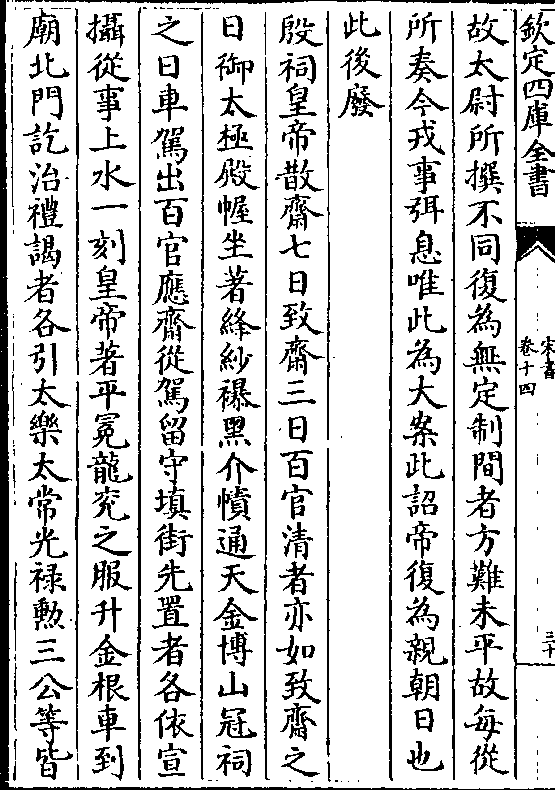 欽定四庫全書
宋書
卷十四
三十
故太尉所撰不同復為無定制間者方難未平故每從
所奏今戎事弭息唯此為大案此詔帝復為親朝日也
此後廢
殷祠皇帝散齋七日致齋三日百官清者亦如致齋之
日御太極殿幄坐著絳紗襮黑介幘通天金博山冠祠
之日車駕出百官應齋從駕留守填街先置者各依宣
攝從事上水一刻皇帝著平冕龍衮之服升金根車到
廟北門訖治禮謁者各引太樂太常光禄勲三公等皆